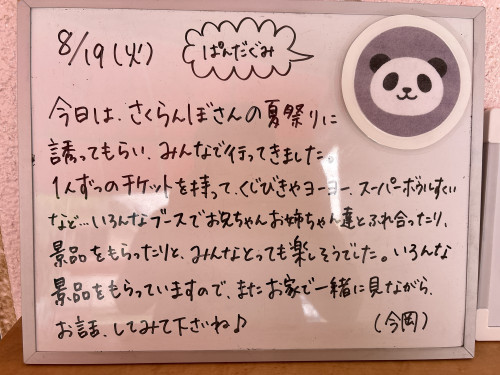 8/19(火)
ぱんだぐみ
今日は、さくらんぼさんの夏祭りに
誘ってもらい、みんなで行ってきました。
1人ずつのチケットを持って、くじびきやヨーヨー、スーパーボウルすくい
など…いろんなブースでお兄ちゃんお姉ちゃん達とふれ合ったり、
景品をもらったりと、みんなとっても楽しそうでした。いろんな
景品をもらっていますので、またお家で一緒に見ながら、
お話、してみて下さいね♪
(今岡)